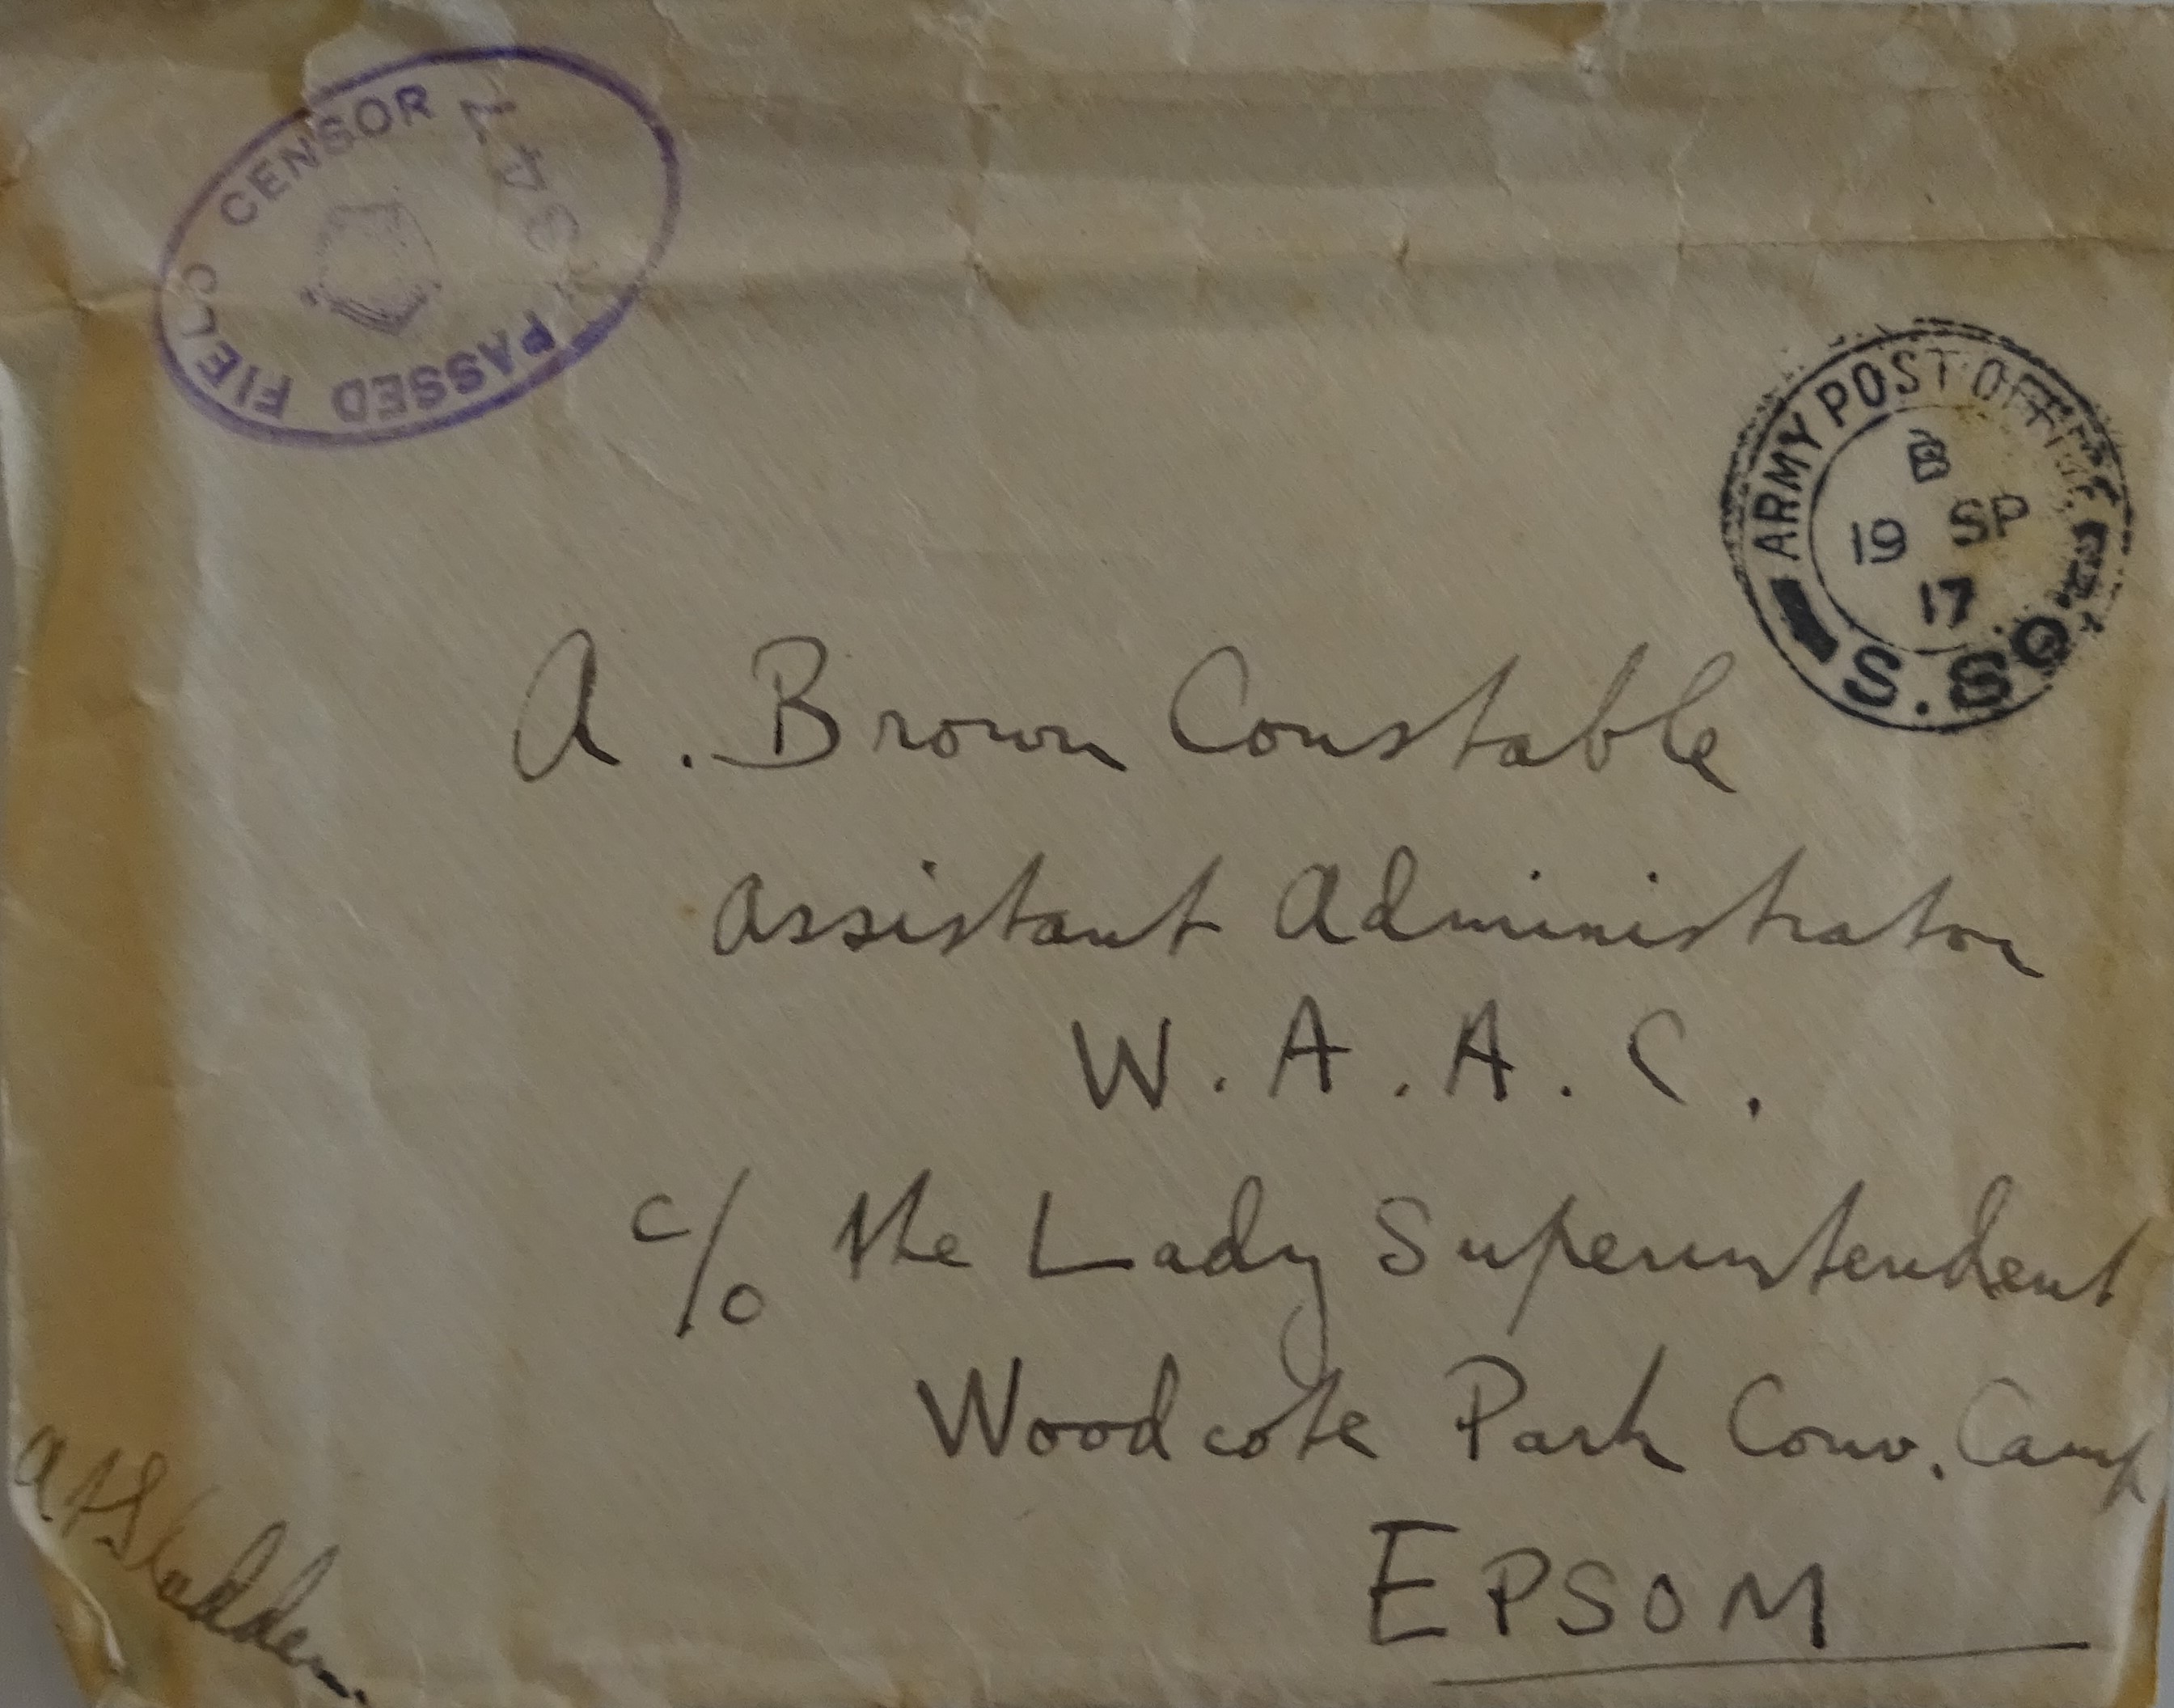 PASSED FIELD CENSOR
ARMY POST OFFICE
B
19 SP
17
A. Brown Constable
Assistant Administrator
W. A. A. C.
c/o the Lady Superintendent
Woodcote Park Conv. Camp
EPSOM